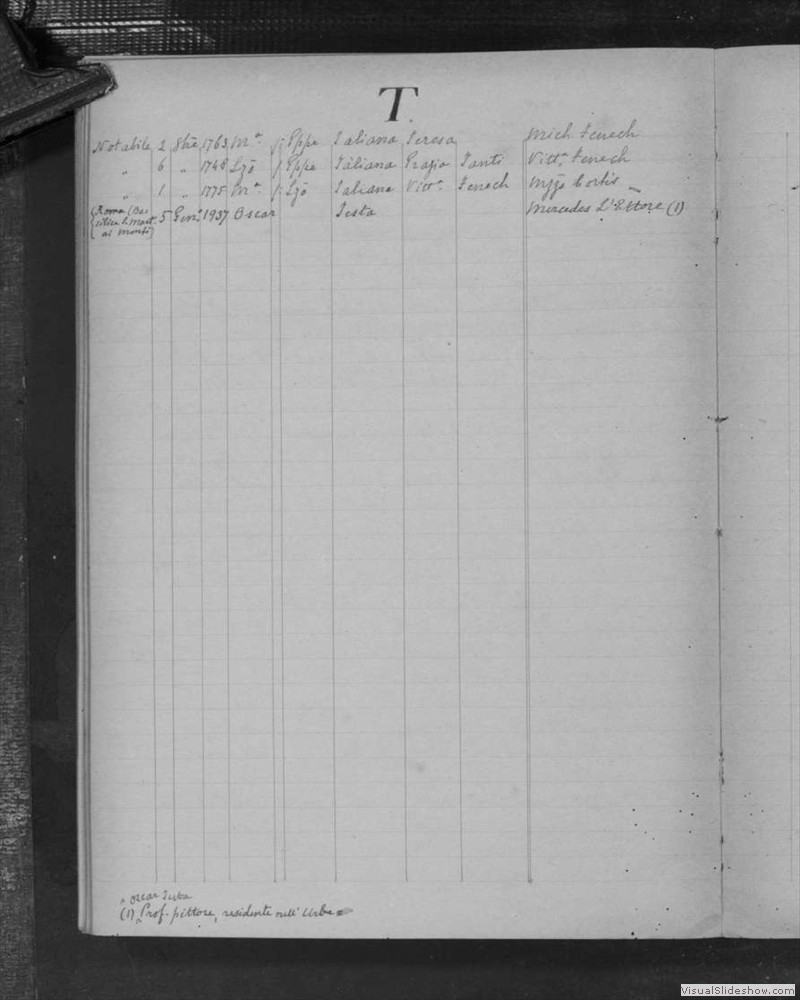 T.
Notabile 2 8bre 1763 Mª f. Gppe Taliana Teresa Mich Fenech
" 6 " 1748 Lzō f. Gppe Taliana Grazia Santi Vittª Fenech
" 1 " 1775 Mª f. Lzō Taliana Vittª Fenech Cortis
Roma (Ba
silica S. Mart.
ai Monti) 5 Genº 1937 Oscar Testa Mercedes L'Ettore (1)
" Oscar Testa
(1) Prof. pittore, residente nell' Urbe
VisualSlideshow.com